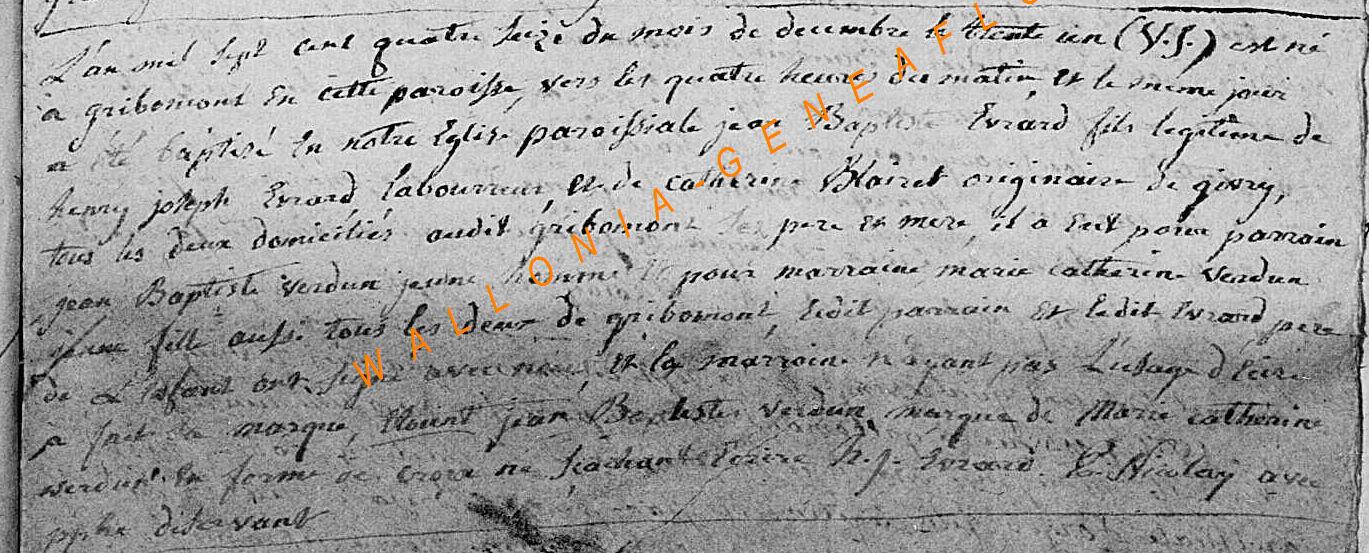 L'an mil sept cent quatre seize du mois de decembre le trente un (V.S.) est né
a gribomont En cette paroisse, vers les quatre heures du matin, et le meme jour
a été baptisé En notre Eglise paroissiale jean Baptiste Evrard fils legitime de
henry joseph Evrard laboureur, et de catherine Blairet originaire de givry,
tous les deux domiciliés audit gribomont ses pere et mere, il a eut pour parrain
jean Baptiste verdun jeune homme et pour marraine marie catherine verdun
jeune fille aussi tous les deux de gribomont, ledit parrain et ledit Evrard pere
de L'enfant ont signé avec nous, et la marraine n'ayant pas L'usage d'Ecrire
a fait sa marque, jean Baptiste verdun, marque de Marie catherine
verdun En forme de croix ne sçachant Ecrire H. j. Evrard. Nicolay
deservant
WALLONIA-GENEAFLO